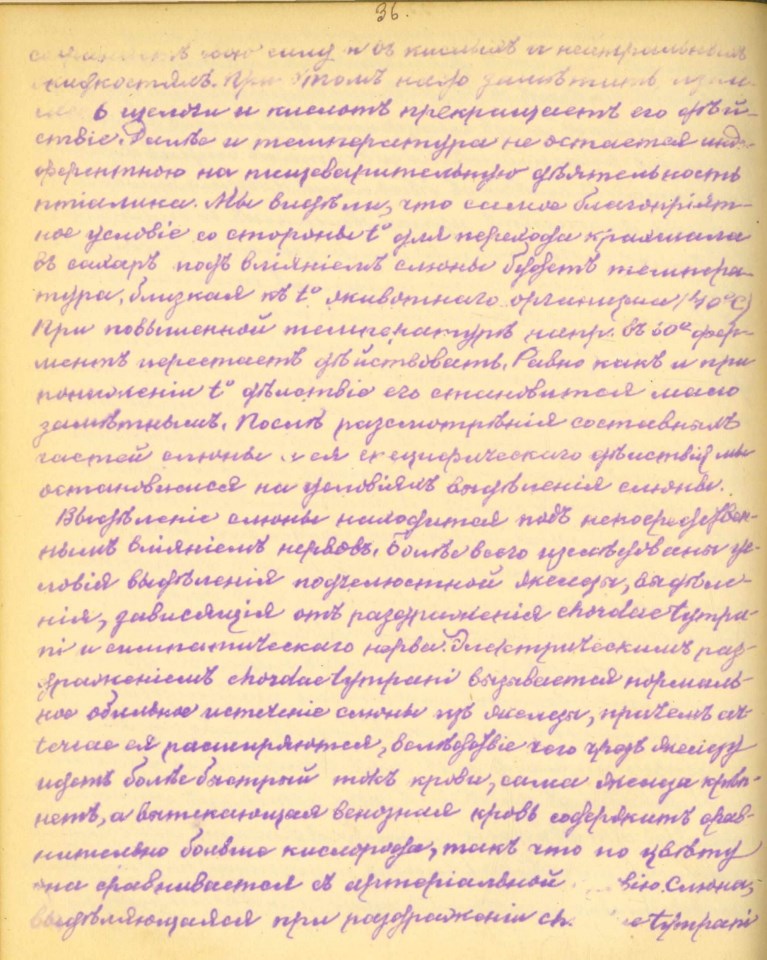 36.
свою силу и въ кислыхъ и нейтральныхъ
жидкостяхъ. При этомъ надо замѣтить
щелочи и кислотъ прекращаетъ его дѣй-
ствіе. Далѣе и температура не остается индиф-
ферентною на пищеварительную дѣятельность
птіалина. Мы видѣли, что самое благопріят-
ное условіе со стороны t° для перехода крахмала
въ сахаръ подъ вліяніемъ слюны будетъ темпера-
тура, близкая къ t° животнаго организма (40°C)
При повышенной температурѣ напр. въ 60° фер-
ментъ перестаетъ дѣйствовать. Равно какъ и при
пониженіи t° дѣйствіе его становится мало
замѣтнымъ. Послѣ разсмотрѣнія составныхъ
частей слюны и ея специфическаго дѣйствія мы
остановимся на условіяхъ выдѣленія слюны.
Выдѣленіе слюны находится подъ непосредствен-
нымъ вліяніемъ нервовъ. Болѣе всего изслѣдованы ус-
ловія выдѣленія подчелюстной железы, выдѣле-
нія, зависящія отъ раздраженія chordae tympa-
ni и симпатическаго нерва. Электрическимъ раз-
драженіемъ chordae tympani вызывается нормаль-
ное обильное истеченіе слюны изъ железы, причемъ ar-
teriae ея расширяются, вслѣдствіе чего чрезъ железу
идетъ болѣе быстрый токъ крови, сама железа краснѣ-
нетъ, а вытекающая венозная кровь содержитъ срав-
нительно больше кислорода, такъ что по цвѣту
она сравнивается съ артеріальной Слюна,
выдѣляющаяся при раздраженіи ch. tympani